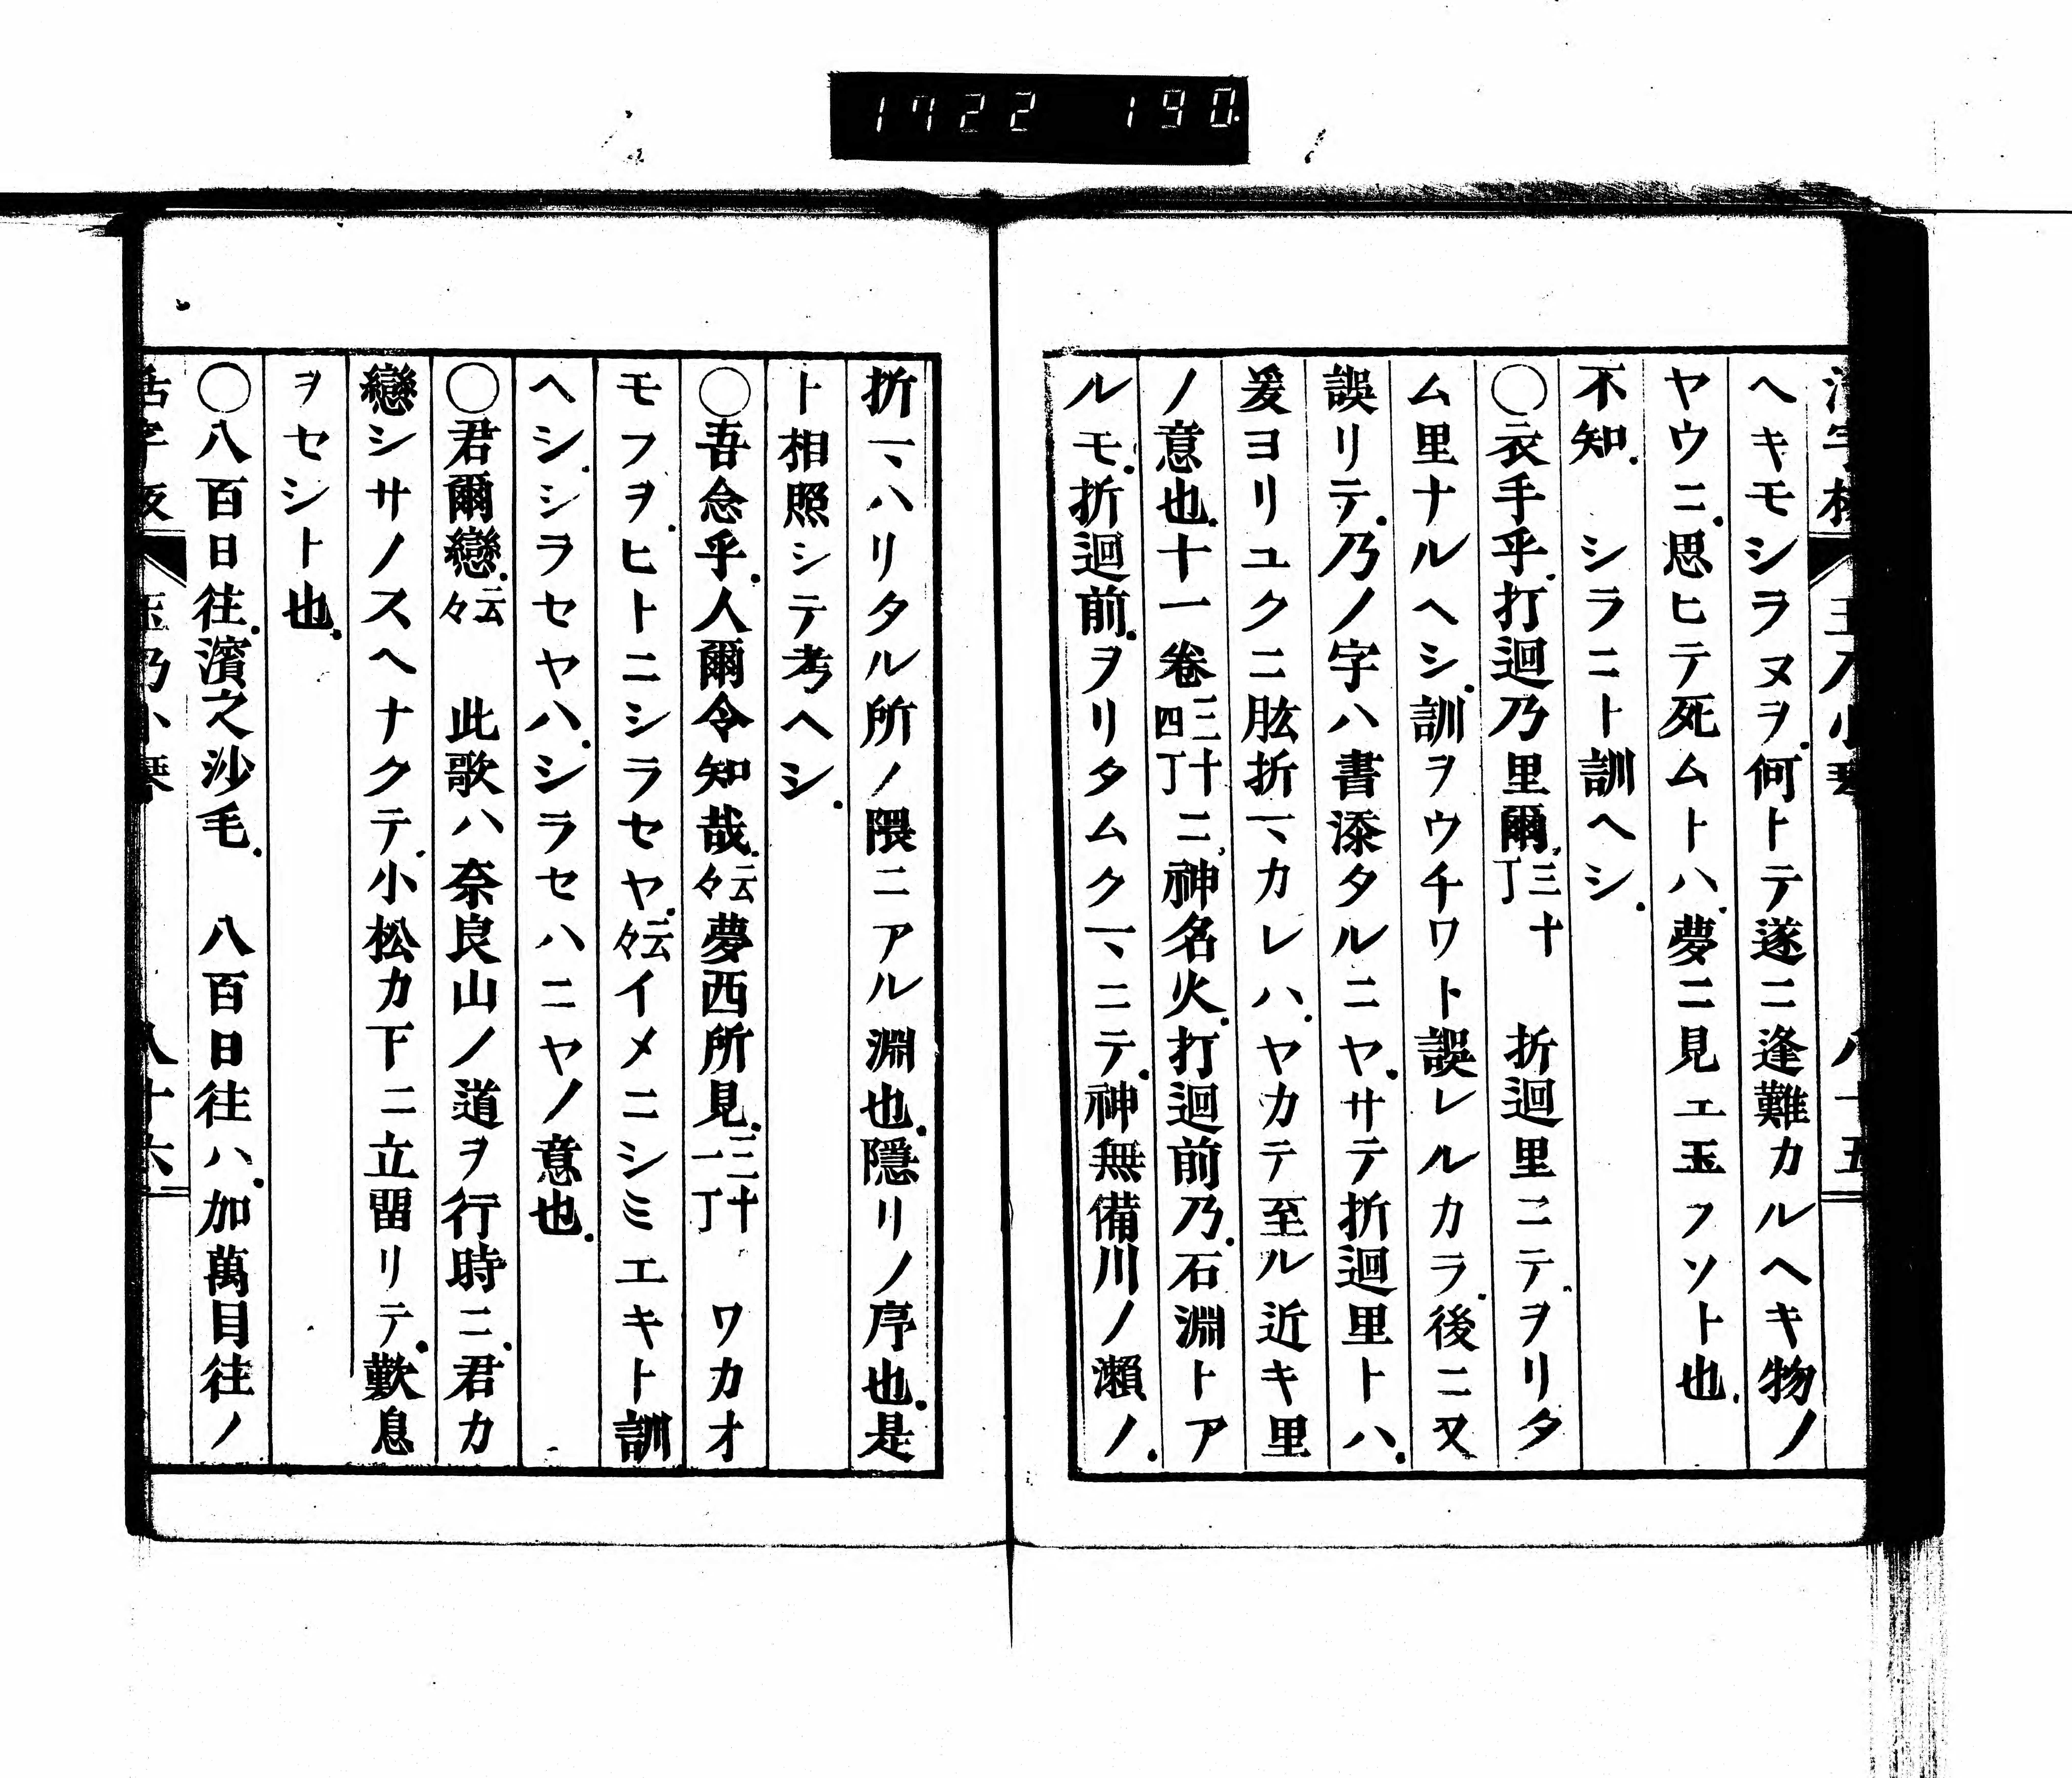 1722 190
ヘキモシラヌヲ.何トテ遂ニ逢難カルヘキ物ノ
ヤウニ.思ヒテ死ムトハ.夢ニ見エ玉フソト也.
不知. シラニト訓ヘシ.
〇衣手乎.打迴乃里爾.三十丁 折迴里ニテ.ヲリタ
ム里ナルヘシ.訓ヲウチワト誤レルカラ.後ニ又
誤リテ.乃ノ字ハ書添タルニヤ.サテ折迴里トハ.
爰ヨリユクニ肱折ヿカレハ.ヤカテ至ル近キ里
ノ意也.十一卷三十四丁ニ.神名火.打迴前乃.石淵トア
ルモ.折迴前.ヲリタムクヿニテ.神無備川ノ瀬ノ.
折ヿハリタル所ノ隈ニアル淵也.隱リノ序也.是
ト相照シテ考ヘシ.
〇吾念乎.人爾令知哉.云々夢西所見.三十一丁 ワカオ
モフヲ.ヒトニシラセヤ.云々イメニシミエキト訓
ヘシ.シラセヤハ.シラセハニヤノ意也.
〇君爾戀.云々 此歌ハ奈良山ノ道ヲ行時ニ.君カ
戀シサノスヘナクテ.小松カ下ニ立畱リテ.歎息
ヲセシト也.
〇八百日往.濱之沙毛. 八百日往ハ.加萬目往ノ
活字板 玉乃小琴 八十六